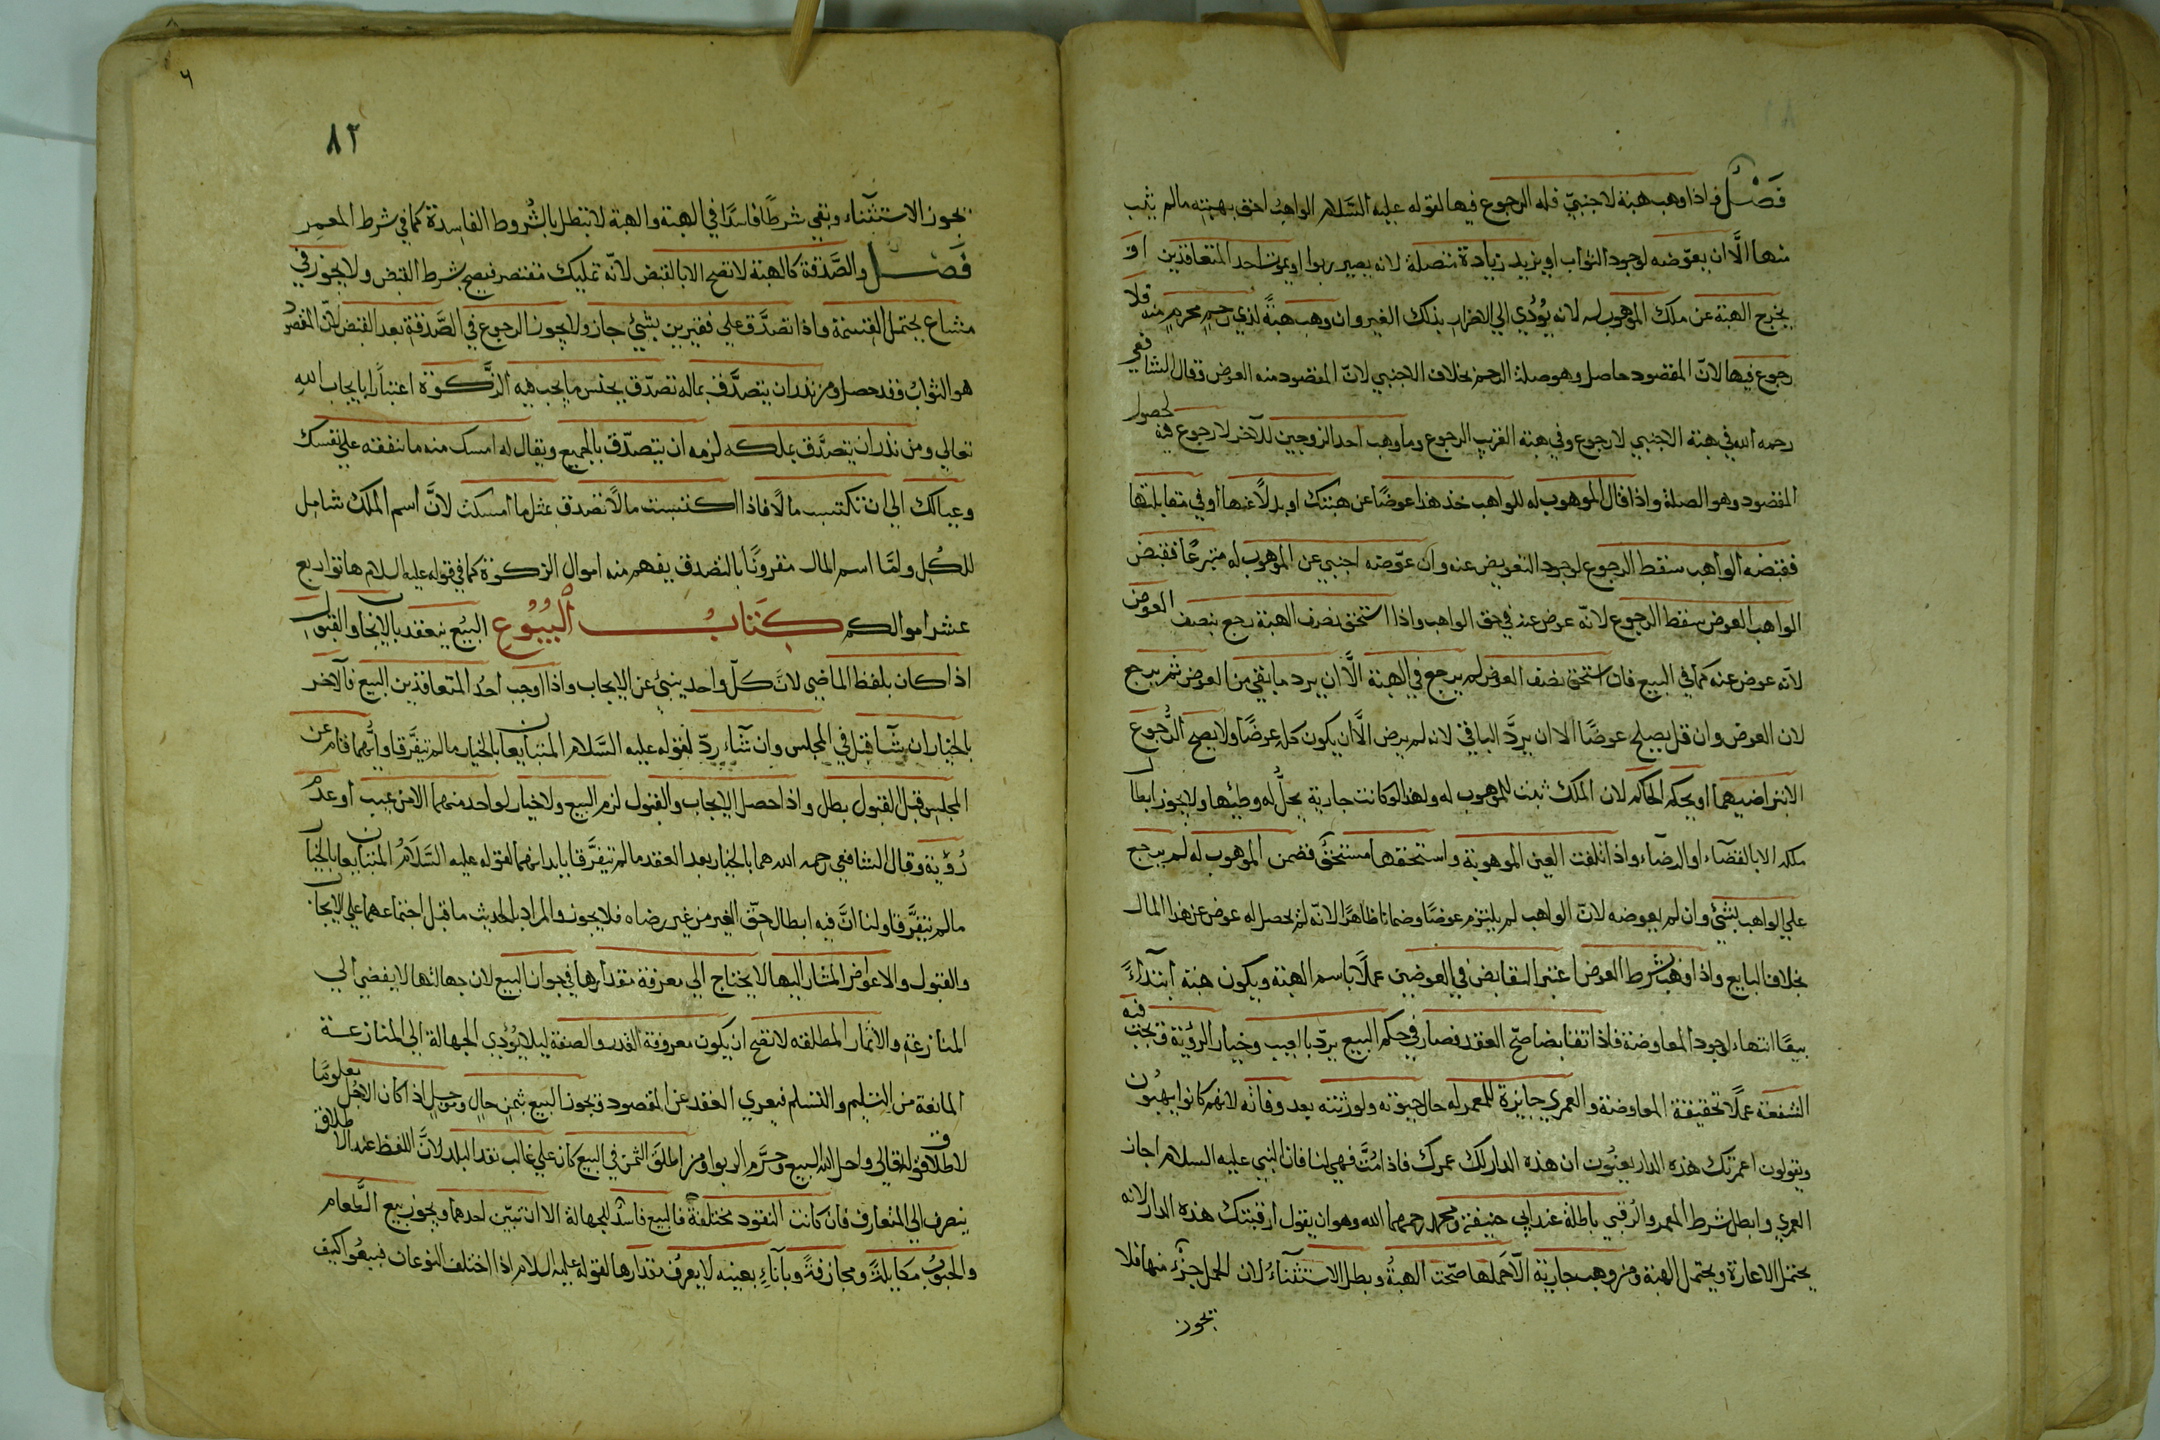 فَصْلٌ فاذا وهب هبة لاجنبيّ فله الرجوع فيها لقوله عليه السّلام الواهب احق بهبته مالم يثب
منها الّا ان يعوّضه لوجود الثواب او يزيد زيادة متصلة لانه يصير ربوا او يموت احد المتعاقدين او
يخرج الهبة عن ملك الموهوب له لانه يؤدي الي الاضرار بذلك الغير وان وهب هبةً لذي رحمٍ محرمٍ منه فلا
رجوع فيها لانّ المقصود حاصل وهو صلة الرحم بخلاف الاجنبي لانّ المقصود منه العوض وقال الشافعي
رحمه الله في هبة الاجنبي لا رجوع وفي هبة القريب الرجوع وما وهب احد الزوجين للآخر لا رجوع فيه لحصول
المقصود وهو الصلة واذا قال الموهوب له للواهب خذ هذا عوضًا عن هبتك او بدلًا عنها او في مقابلتها
فقبضه الواهب سقط الرجوع لوجود التعويض عنه وان عوّضه اجنبي عن الموهوب له متبرعًا فقبض
الواهب العوض سقط الرجوع لانّه عوض عنه في حق الواهب واذا استحق نصف الهبة رجع بنصف العوض
لانّه عوض عنه كما في البيع فان استحق نصف العوض لم يرجع في الهبة الّا ان يرد ما بقي من العوض ثم يرجع
لان العوض وان قل يصلح عوضًا الا ان يردَّ الباقي لانه لم يرض الّا ان يكون كله عوضًا ولا يصح الرُّجوع
الا بتراضيهما او بحكم الحاكم لان الملك ثبت للموهوب له ولهذا لو كانت جارية يحلُّ له وطئها ولا يجوز ابطال
ملكه الا بالقضآء او الرضآء واذا تلفت العين الموهوبة واستحقها مستحقٌّ فضمن الموهوب له لم يرجع
علي الواهب بشئ وان لم يعوضه لانّ الواهب لم يلتزم عوضًا وضمانا ظاهرًا لانّه لم يحصل له عوض عن هذا المال
بخلاف البايع واذا وهب بشرط العوض اعتبر التقابض في العوضين عملًا باسم الهبة ويكون هبة ابتدآءً
بيعًا انتهاء لوجود المعاوضة فاذا تقابضا صحّ العقد فصار في حكم البيع يردّ بالعيب وخيار الرؤية وتجب فيه
الشفعة عملًا بحقيقة المعاوضة والعمري جايزة للمعمر له حال حيوته ولورثته بعد وفاته لانهم كانوا يهبون
ويقولون اعمرتك هذه الدار يعنُون ان هذه الدار لك عمرك فاذا مُتَّ فهي لنا فان النبي عليه السلام اجاز
العمري وابطل شرط المعمر والرقبي باطلة عند ابي حنيفة ومحمد رحمهما الله وهو ان يقول ارقبتك هذه الدار لانه
يحتمل الاعارة ويحتمل الهبة ومن وهب جارية الّا حملها صحّت الهبةُ وبطل الاستثنآءُ لان الحمل جزء منها فلا
يجوز
٨٢
يجوز الاستثناء وبقي شرطًا فاسدًا في الهبة والهبة لا تبطل بالشُّروط الفاسدة كما في شرط المعمِر
فَصْل والصَّدقة كالهبة لا تصح الا بالقبض لانّه تمليك مقتصر فيصح بشرط القبض ولا يجوز في
مشاع يحتمل القسمة واذا تصدَّق علي فقيرين بشئ جاز ولا يجوز الرجوع في الصَّدقة بعد القبض لانّ المقصود
هو الثوابُ وقد حصل ومن نذر ان يتصدَّق بماله تصدّق بجنس ما يجب فيه الزَّكوة اعتبارًا بايجاب اللهِ
تعالي ومن نذر ان يتصدَّق بملكه لزمه ان يتصدّق بالجميع ويقال له امسك منه ما تنفقه علي نفسك
وعيالك الي ان تكتسب مالًا فاذا اكتسبت مالًا تصدق بمثل ما امسكت لانَّ اسم الملك شامل
للكُل وامّا اسم المال مقرونًا بالتصدق يفهم منه اموال الزكوة كما في قوله عليه السلام هاتوا ربع
عشر اموالكم كتاب البُيُوع البيع ينعقد بالايجاب والقبول
اذا كان بلفظ الماضي لانّ كلّ واحد ينبئ عن الايجاب واذا اوجب احدُ المتعاقدين البيع فالآخر
بالخيار ان شآء قبل في المجلس وان شآء ردّ لقوله عليه السَّلام المتبايعان بالخيار مالم يتفرَّقا وايُّهما قام عن
المجلس قبل القبول بطل واذا حصل الايجاب والقبول لزم البيع ولا خيار لواحد منهما الا من عيب او عدم
رُؤية وقال الشافعي رحمه الله هما بالخيار بعد العقد مالم يتفرَّقا بابدانهما لقوله عليه السَّلامُ المتبايعان بالخيار
مالم يتفرَّقا ولنا انَّ فيه ابطال حقّ الغير من غير رضاه فلا يجوز والمراد بالحديث ما قبل اجتماعهما علي الايجاب
والقبول والاعواض المشار اليها لا يحتاج الي معرفة مقدارها في جواز البيع لان جهالتها لا يفضي الي
المنازعة والاثمان المطلقة لا تصح ان يكون معروفة القدر والصفة ليلا يُؤدي الجهالة الي المنازعة
المانعة من التسليم والتسلم فيعري العقد عن المقصود ويجوز البيع بثمنٍ حالٍ ومؤجل اذا كان الاجل معلومًا
لاطلاق قوله تعالي واحل الله البيع وحرَّم الربوا ومن اطلق الثمن في البيع كان علي غالب نقد البلد لانَّ اللفظ عند الاطلاق
ينصرف الي المتعارف فان كانت النقود مختلفةً فالبيع فاسدٌ للجهالة الا ان تبيّن احدهما ويجوز بيع الطَّعام
والحبُوب مكايلةً ومجازفةً وباناءٍ بعينه لا يعرف مقدارها لقوله عليه السلام اذا اختلف النوعان فبيعُوا كيف